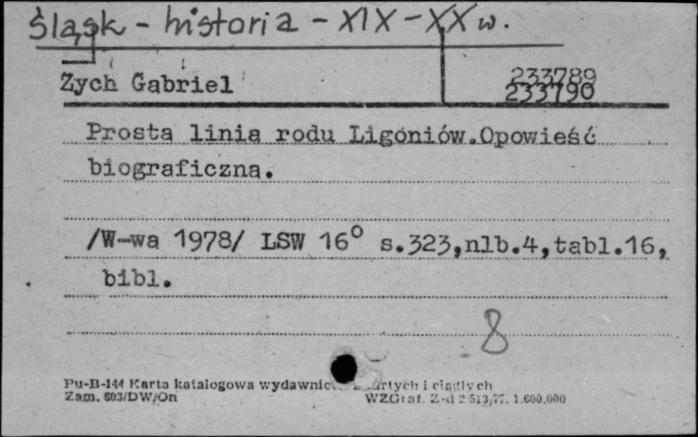 Śląsk - historia - XIX - XX w.
Zych Gabriel
233789
233790
Prosta linia rodu Ligoniów.Opowieść
biograficzna.
/W-wa 1978/ LSW 16° s.323,nlb.4,tabl.16,
bibl.
8
Pu-B-144 Karta katalogowa wydawnic i ciągłych
Zam. 603/DW/On WZGraf. Z-d 2 513/77. 1.600.000